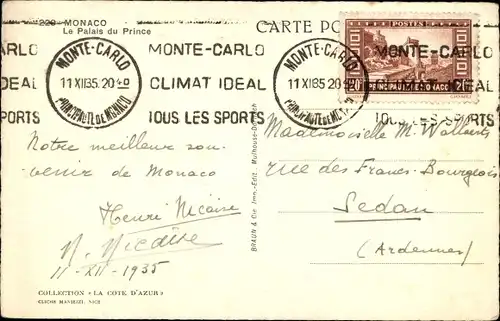 228 - MONACO
Le Palais du Prince
CARTE PO
MONTE-CARLO
11 XII 35. 20 40
PRINCIPAUTÉ DE MONACO
MONTE-CARLO
CLIMAT IDEAL
TOUS LES SPORTS
MONTE-CARLO
11 XII 35. 20 40
PRINCIPAUTÉ DE MONACO
POSTES
20 PRINCIPAUTÉ DE MONACO 20
MONTE-CARLO
IDEAL
TOUS LES SPORTS
Notre meilleur sou-
venir de Monaco
Henri Nicaise
N. Nicaise
11-XII-1935
Mademoiselle M. Wallaerts
rue des Francs-Bourgeois
Sedan
(Ardennes)
BRAUN & Cie, Imp.-Édit. Mulhouse-Dornach
COLLECTION « LA COTE D'AZUR »
NICE